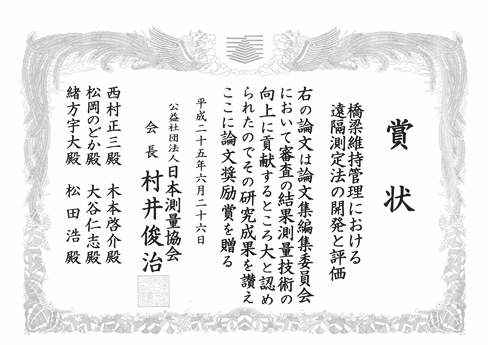 賞状
橋梁維持管理における
遠隔測定法の開発と評価
右の論文は論文集編集委員会
において審査の結果測量技術の
向上に貢献するところ大と認め
られたのでその研究成果を讃え
ここに論文奨励賞を贈る
平成二十五年六月二十六日
公益社団法人日本測量協会
会長 村井俊治
西村正三殿 木本啓介殿
松岡のどか殿 大谷仁志殿
緒方宇大殿 松田浩殿